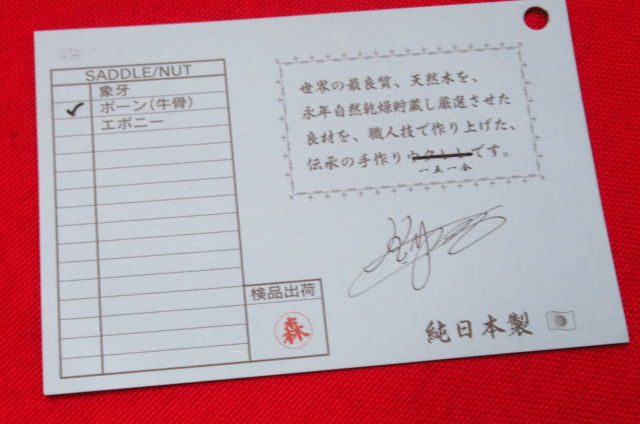 SADDLE/NUT
象牙
✓ ボーン(牛骨)
エボニー
世界の最良質、天然木を、
永年自然乾燥貯蔵し厳選させた
良材を、職人技で作り上げた、
伝承の手作りウクレレです。
一五一会
検品出荷
森
純日本製